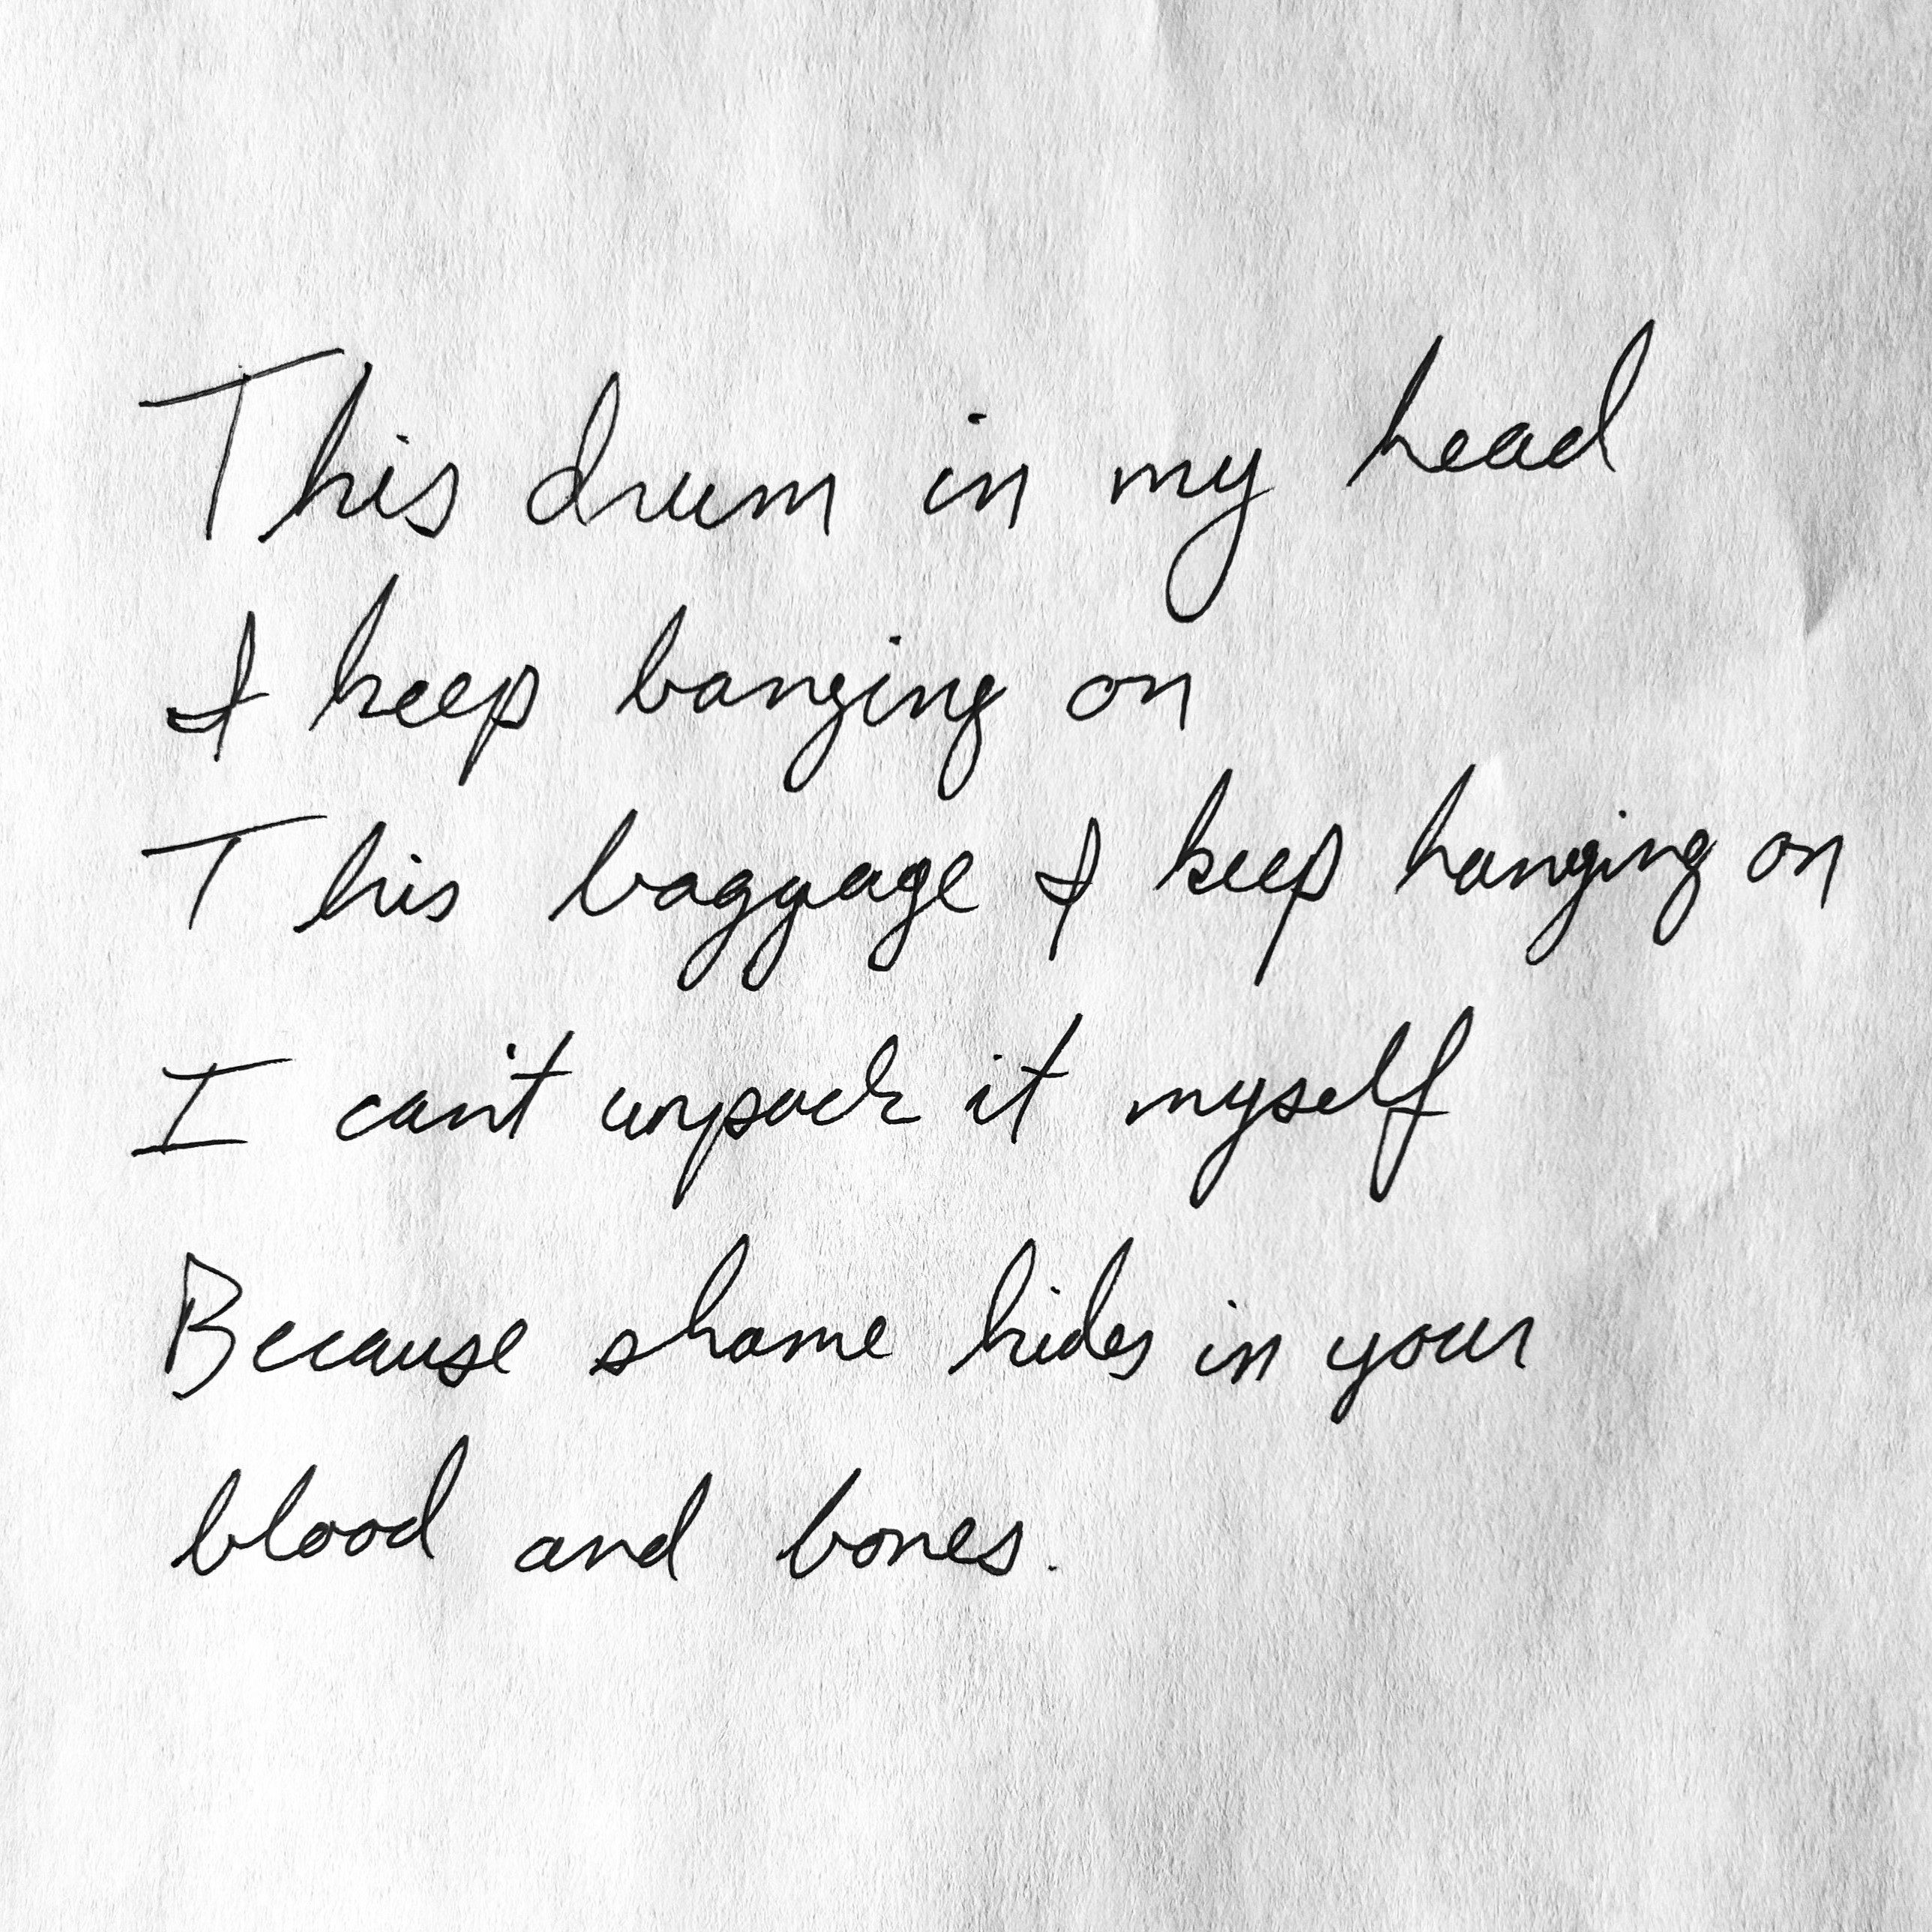 This drum in my head
I keep banging on
This baggage I keep hanging on
I can't unpack it myself
Because shame hides in your
blood and bones.